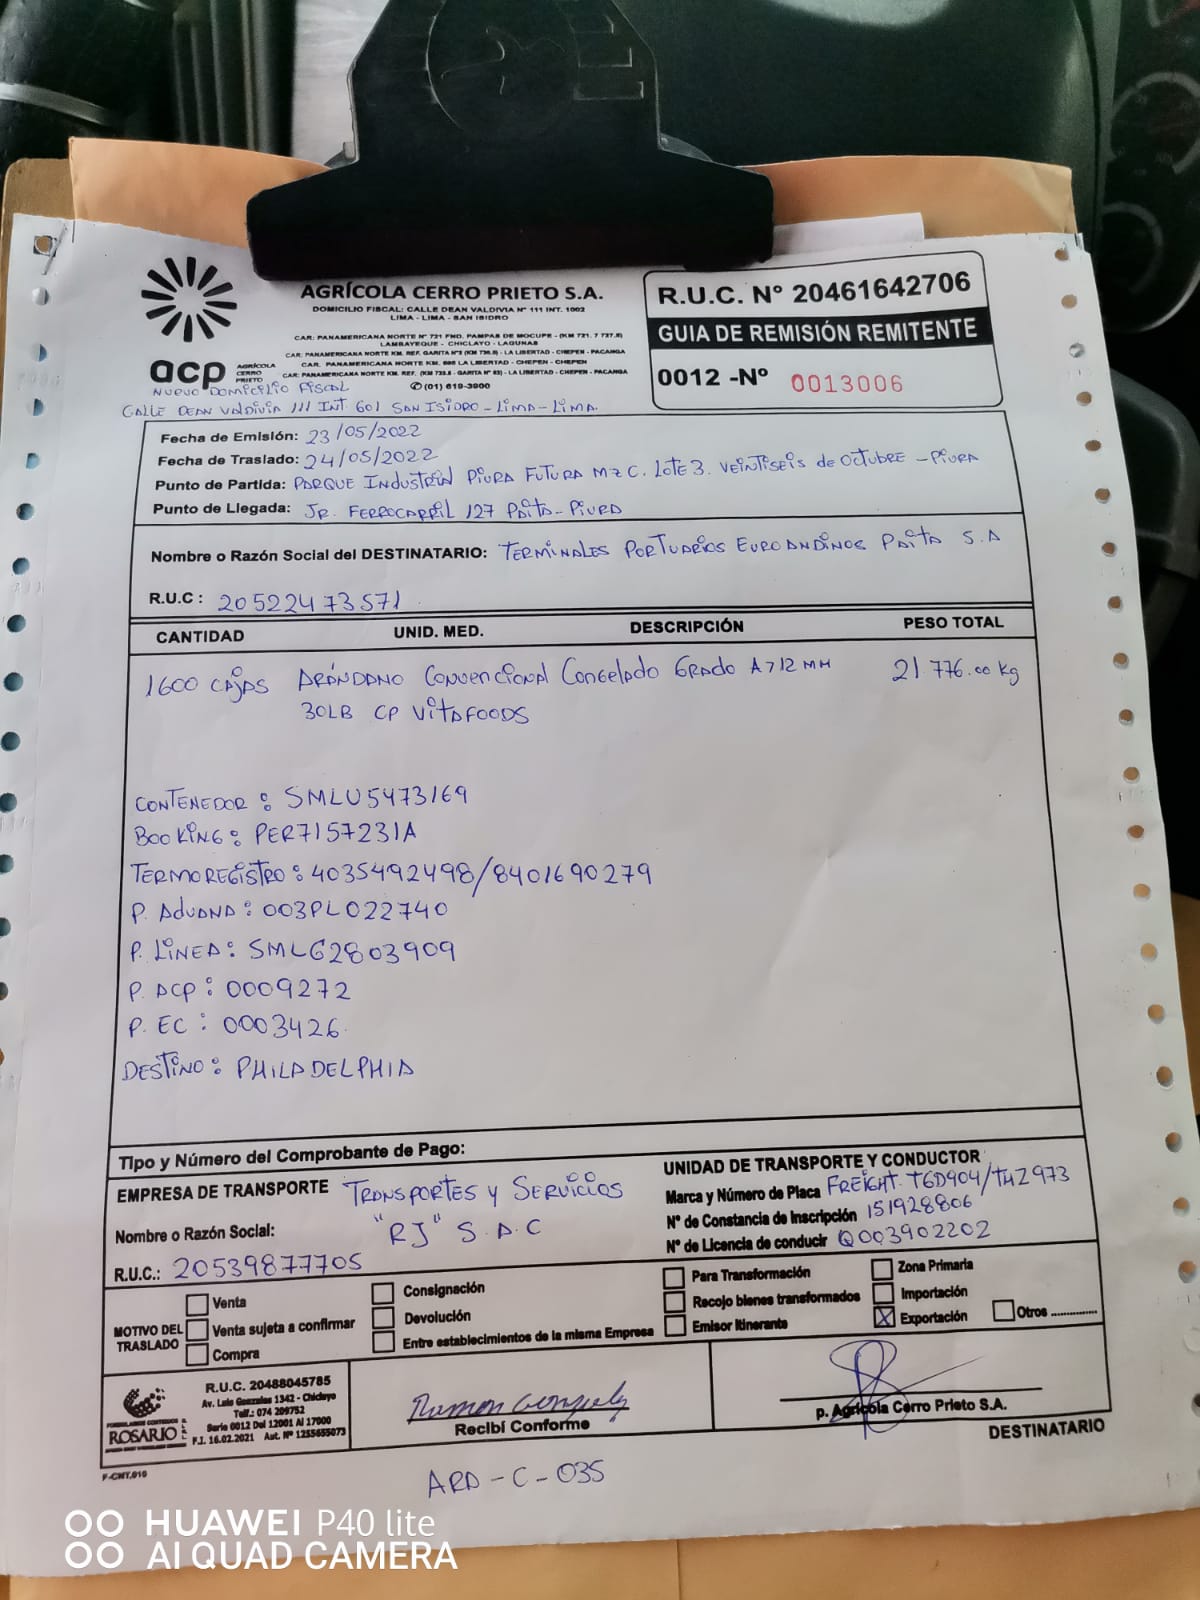 AGRÍCOLA CERRO PRIETO S.A.
DOMICILIO FISCAL: CALLE DEAN VALDIVIA N° 111 INT. 1002
LIMA - LIMA - SAN ISIDRO
CAR. PANAMERICANA NORTE N° 721 FND. PAMPAS DE MOCUPE - (KM 721. 7 727.8)
LAMBAYEQUE - CHICLAYO - LAGUNAS
CAR. PANAMERICANA NORTE KM. REF. GARITA N°2 (KM 736.8) - LA LIBERTAD - CHEPEN - PACANGA
CAR. PANAMERICANA NORTE KM. 695 LA LIBERTAD - CHEPEN - CHEPEN
CAR. PANAMERICANA NORTE KM. REF. (KM 733.8 - GARITA N° 83) - LA LIBERTAD - CHEPEN - PACANGA
(01) 619-3900
acp AGRÍCOLA CERRO PRIETO
NUEVO DOMICILIO FISCAL
CALLE DEAN VALDIVIA 111 INT. 601 SAN ISIDRO - LIMA - LIMA.
R.U.C. N° 20461642706
GUIA DE REMISIÓN REMITENTE
0012 -N° 0013006
Fecha de Emisión: 23/05/2022
Fecha de Traslado: 24/05/2022
Punto de Partida: PARQUE INDUSTRIAL PIURA FUTURA MZ C. LOTE 3. VEINTISEIS de OCTUBRE - PIURA
Punto de Llegada: JR. FERROCARRIL 127 PAITA - PIURA
Nombre o Razón Social del DESTINATARIO: TERMINALES PORTUARIOS EUROANDINOS PAITA S.A
R.U.C : 20522473571
CANTIDAD UNID. MED. DESCRIPCIÓN PESO TOTAL
1600 CAJAS ARÁNDANO CONVENCIONAL CONGELADO GRADO A >12 MM 21 776.00 Kg
30LB CP VITAFOODS
CONTENEDOR : SMLU5473169
BOOKING : PER7157231A
TERMOREGISTRO : 4035492498/8401690279
P. ADUANA : 003PL022740
P. LINEA : SMLG2803909
P. ACP : 0009272
P. EC : 0003426
DESTINO : PHILADELPHIA
Tipo y Número del Comprobante de Pago:
EMPRESA DE TRANSPORTE TRANSPORTES Y SERVICIOS
Nombre o Razón Social: "RJ" S.A.C
R.U.C.: 20539877705
UNIDAD DE TRANSPORTE Y CONDUCTOR
Marca y Número de Placa FREIGHT. T6D904/THZ973
N° de Constancia de Inscripción 151928806
N° de Licencia de conducir Q003902202
MOTIVO DEL TRASLADO
Venta
Venta sujeta a confirmar
Compra
Consignación
Devolución
Entre establecimientos de la misma Empresa
Para Transformación
Recojo bienes transformados
Emisor Itinerante
Zona Primaria
Importación
X Exportación
Otros ..............
ROSARIO
R.U.C. 20488045785
Av. Luis Gonzales 1342 - Chiclayo
Telf.: 074 209752
Serie 0012 Del 12001 Al 17000
F.I. 16.02.2021 Aut. N° 1255655073
Recibí Conforme
p. Agrícola Cerro Prieto S.A.
DESTINATARIO
F-CNT.010
ARD - C - 035
HUAWEI P40 lite
AI QUAD CAMERA